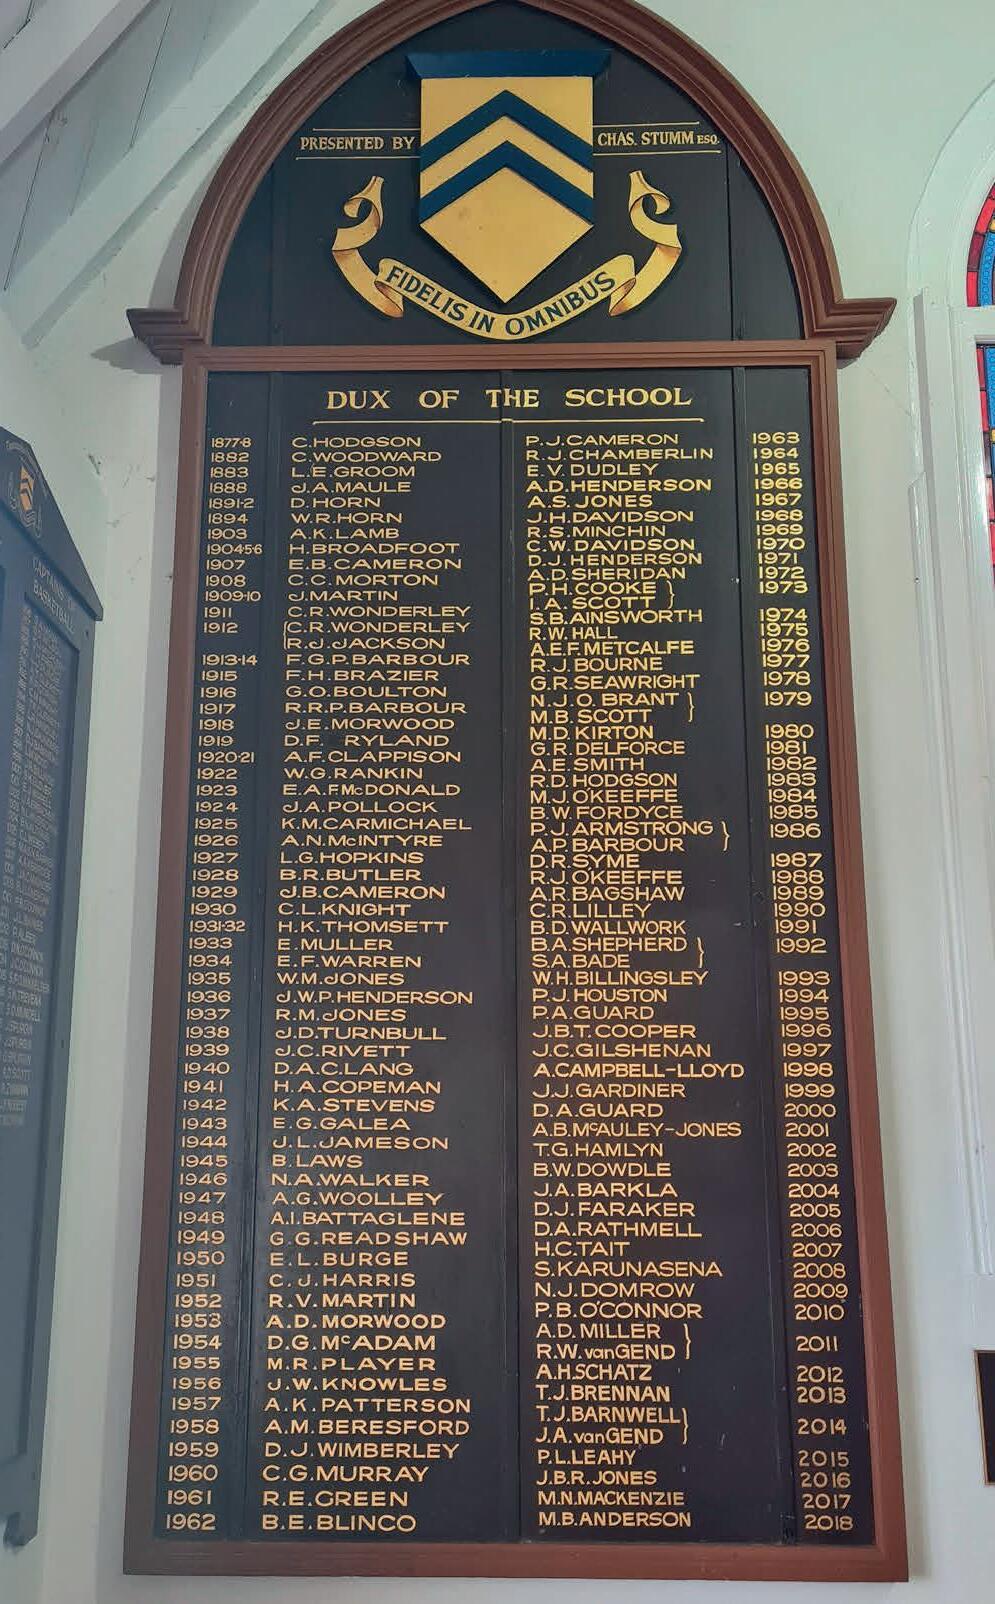 PRESENTED BY
CHAS. STUMM ESQ.
FIDELIS IN OMNIBUS
DUX OF THE SCHOOL
1877-8 C. HODGSON
1882 C. WOODWARD
1883 L. E. GROOM
1888 J. A. MAULE
1891-2 D. HORN
1894 W. R. HORN
1903 A. K. LAMB
1904-5-6 H. BROADFOOT
1907 E. B. CAMERON
1908 C. C. MORTON
1909-10 J. MARTIN
1911 C. R. WONDERLEY
1912 {C. R. WONDERLEY
R. J. JACKSON
1913-14 F. G. P. BARBOUR
1915 F. H. BRAZIER
1916 G. O. BOULTON
1917 R. R. P. BARBOUR
1918 J. E. MORWOOD
1919 D. F. RYLAND
1920-21 A. F. CLAPPISON
1922 W. G. RANKIN
1923 E. A. F. McDONALD
1924 J. A. POLLOCK
1925 K. M. CARMICHAEL
1926 A. N. McINTYRE
1927 L. G. HOPKINS
1928 B. R. BUTLER
1929 J. B. CAMERON
1930 C. L. KNIGHT
1931-32 H. K. THOMSETT
1933 E. MULLER
1934 E. F. WARREN
1935 W. M. JONES
1936 J. W. P. HENDERSON
1937 R. M. JONES
1938 J. D. TURNBULL
1939 J. C. RIVETT
1940 D. A. C. LANG
1941 H. A. COPEMAN
1942 K. A. STEVENS
1943 E. G. GALEA
1944 J. L. JAMESON
1945 B. LAWS
1946 N. A. WALKER
1947 A. G. WOOLLEY
1948 A. I. BATTAGLENE
1949 G. G. READSHAW
1950 E. L. BURGE
1951 C. J. HARRIS
1952 R. V. MARTIN
1953 A. D. MORWOOD
1954 D. G. McADAM
1955 M. R. PLAYER
1956 J. W. KNOWLES
1957 A. K. PATTERSON
1958 A. M. BERESFORD
1959 D. J. WIMBERLEY
1960 C. G. MURRAY
1961 R. E. GREEN
1962 B. E. BLINCO
P. J. CAMERON 1963
R. J. CHAMBERLIN 1964
E. V. DUDLEY 1965
A. D. HENDERSON 1966
A. S. JONES 1967
J. H. DAVIDSON 1968
R. S. MINCHIN 1969
C. W. DAVIDSON 1970
D. J. HENDERSON 1971
A. D. SHERIDAN 1972
P. H. COOKE } 1973
I. A. SCOTT
S. B. AINSWORTH 1974
R. W. HALL 1975
A. E. F. METCALFE 1976
R. J. BOURNE 1977
G. R. SEAWRIGHT 1978
N. J. O. BRANT } 1979
M. B. SCOTT
M. D. KIRTON 1980
G. R. DELFORCE 1981
A. E. SMITH 1982
R. D. HODGSON 1983
M. J. O'KEEFFE 1984
B. W. FORDYCE 1985
P. J. ARMSTRONG } 1986
A. P. BARBOUR
D. R. SYME 1987
R. J. O'KEEFFE 1988
A. R. BAGSHAW 1989
C. R. LILLEY 1990
B. D. WALLWORK 1991
B. A. SHEPHERD } 1992
S. A. BADE
W. H. BILLINGSLEY 1993
P. J. HOUSTON 1994
P. A. GUARD 1995
J. B. T. COOPER 1996
J. C. GILSHENAN 1997
A. CAMPBELL-LLOYD 1998
J. J. GARDINER 1999
D. A. GUARD 2000
A. B. McAULEY-JONES 2001
T. G. HAMLYN 2002
B. W. DOWDLE 2003
J. A. BARKLA 2004
D. J. FARAKER 2005
D. A. RATHMELL 2006
H. C. TAIT 2007
S. KARUNASENA 2008
N. J. DOMROW 2009
P. B. O'CONNOR 2010
A. D. MILLER } 2011
R. W. vanGEND
A. H. SCHATZ 2012
T. J. BRENNAN 2013
T. J. BARNWELL } 2014
J. A. vanGEND
P. L. LEAHY 2015
J. B. R. JONES 2016
M. N. MACKENZIE 2017
M. B. ANDERSON 2018
CAPTAINS OF
BASKETBALL